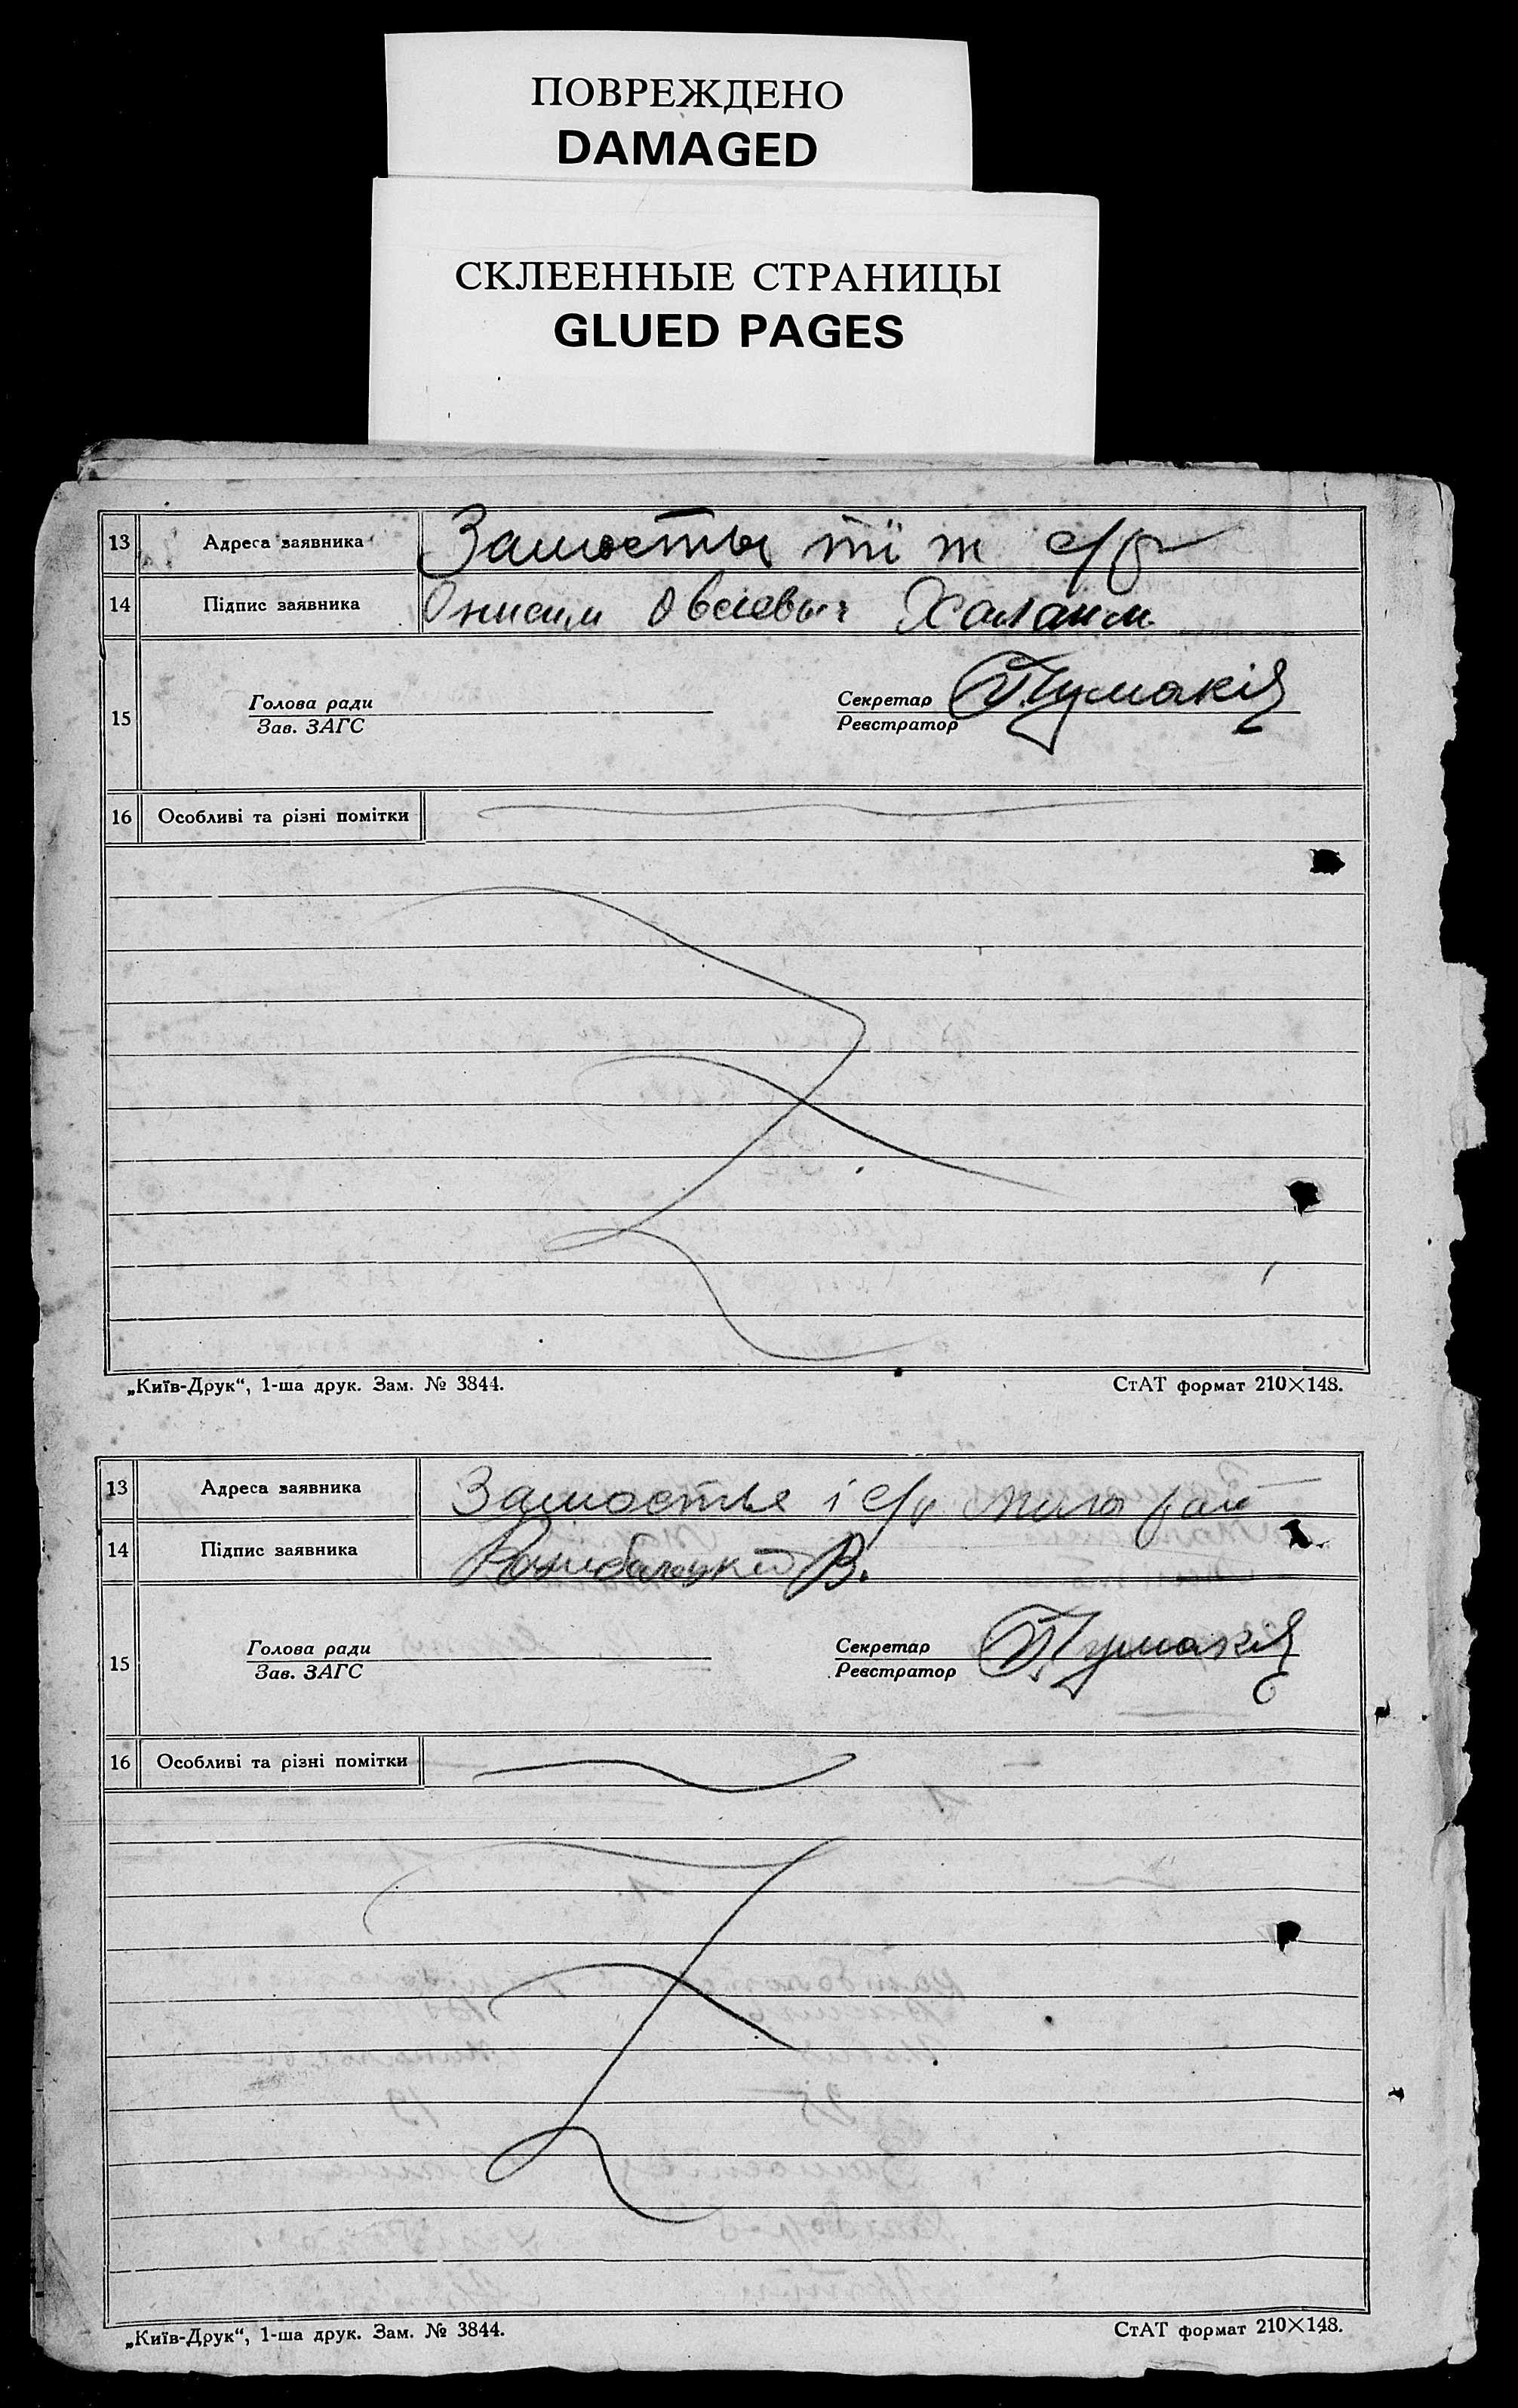 ПОВРЕЖДЕНО
DAMAGED
СКЛЕЕННЫЕ СТРАНИЦЫ
GLUED PAGES
13 Адреса заявника Замостья тії ж с/р
14 Підпис заявника Онисим Овсієвич Халаим
15 Голова ради Секретар
Зав. ЗАГС Реєстратор
16 Особливі та різні помітки
„Київ-Друк“, 1-ша друк. Зам. № 3844. СтАТ формат 210×148.
13 Адреса заявника Замостье і с/р
14 Підпис заявника В.
15 Голова ради Секретар
Зав. ЗАГС Реєстратор
16 Особливі та різні помітки
„Київ-Друк“, 1-ша друк. Зам. № 3844. СтАТ формат 210×148.